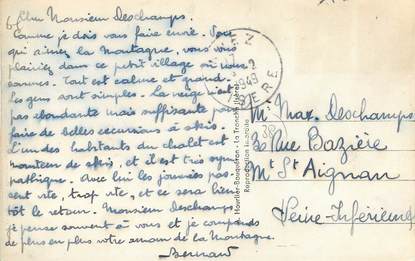 Cher Monsieur Deschamps.
Comme je dois vous faire envie. Vous
qui aimez la montagne, vous vous
plairiez dans ce petit village où nous
sommes. Tout est calme et grand.
Les gens sont simples. La neige n'est
pas abondante mais suffisante pour
faire de belles excursions à skis.
L'un des habitants du chalet est
moniteur de skis, et il est très sym
pathique. Avec lui les journées pas
sent vite, trop vite, et ce sera bien
tôt le retour. Monsieur Deschamps
je pense souvent à vous et je comprends
de plus en plus votre amour de la montagne.
Bernard
1949
ISERE
Reproduction interdite
Mr Max. Deschamps
Rue Bazière
Mt St Aignan
Seine-Inférieure